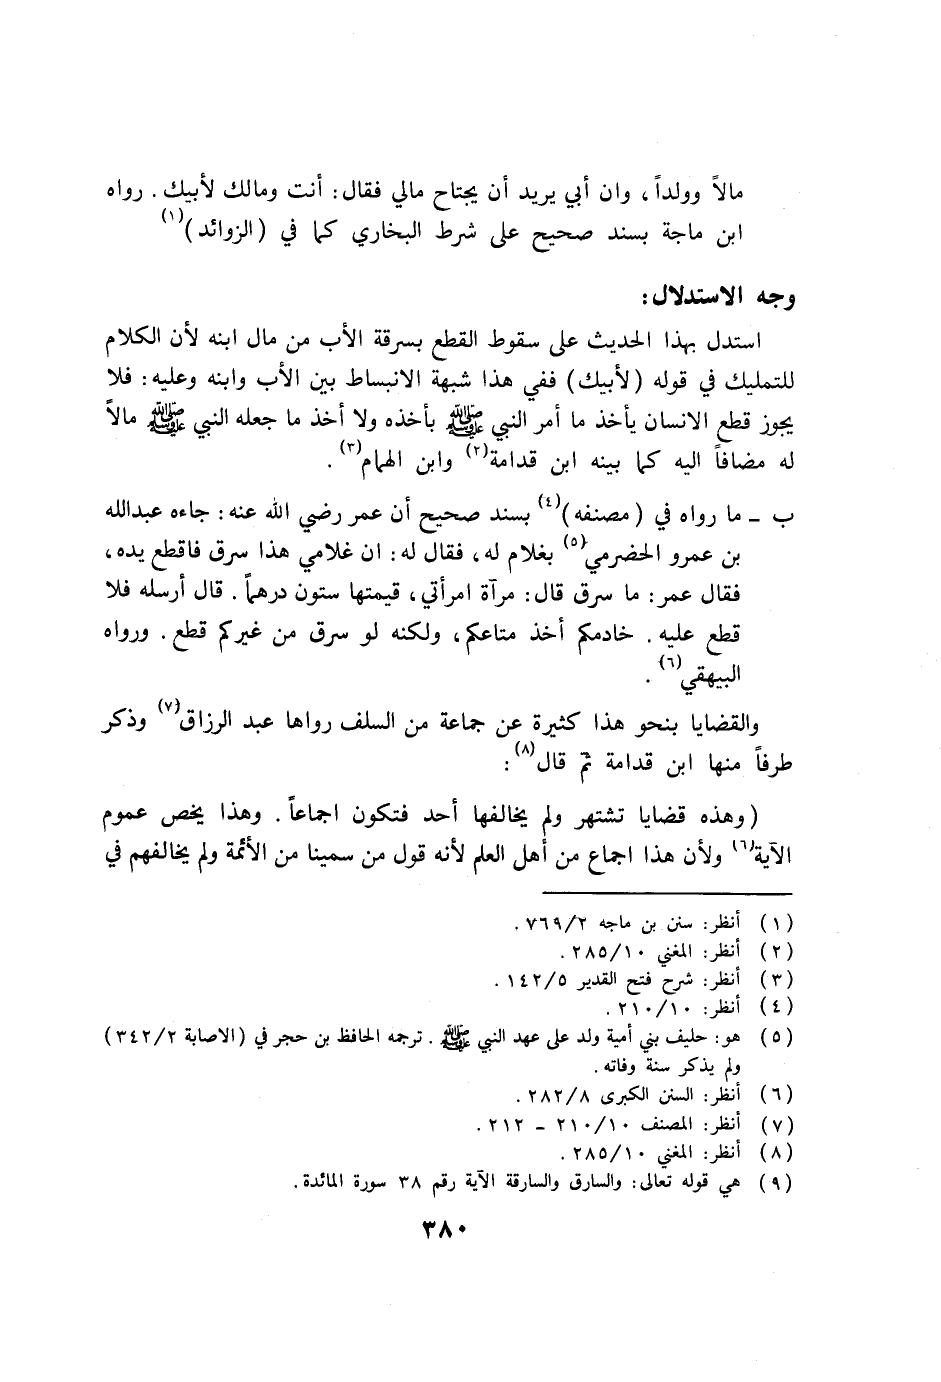 مالاً وولداً، وان أبي يريد أن يجتاح مالي فقال: أنت ومالك لأبيك. رواه
ابن ماجة بسند صحيح على شرط البخاري كما في (الزوائد)(١)
وجه الاستدلال:
استدل بهذا الحديث على سقوط القطع بسرقة الأب من مال ابنه لأن الكلام
للتمليك في قوله (لأبيك) ففي هذا شبهة الانبساط بين الأب وابنه وعليه: فلا
يجوز قطع الانسان يأخذ ما أمر النبي ﷺ بأخذه ولا أخذ ما جعله النبي ﷺ مالاً
له مضافاً اليه كما بينه ابن قدامة(٢) وابن الهمام(٣).
ب ـ ما رواه في (مصنفه)(٤) بسند صحيح أن عمر رضي الله عنه: جاءه عبدالله
بن عمرو الحضرمي(٥) بغلام له، فقال له: ان غلامي هذا سرق فاقطع يده،
فقال عمر: ما سرق قال: مرآة امرأتي، قيمتها ستون درهماً. قال أرسله فلا
قطع عليه. خادمكم أخذ متاعكم، ولكنه لو سرق من غيركم قطع. ورواه
البيهقي(٦).
والقضايا بنحو هذا كثيرة عن جماعة من السلف رواها عبد الرزاق(٧) وذكر
طرفاً منها ابن قدامة ثم قال(٨):
(وهذه قضايا تشتهر ولم يخالفها أحد فتكون اجماعاً. وهذا يخص عموم
الآية(٦) ولأن هذا اجماع من أهل العلم لأنه قول من سمينا من الأئمة ولم يخالفهم في
(١) أنظر: سنن بن ماجه ٧٦٩/٢.
(٢) أنظر: المغني ٢٨٥/١٠.
(٣) أنظر: شرح فتح القدير ١٤٢/٥.
(٤) أنظر: ٢١٠/١٠.
(٥) هو: حليف بني أمية ولد على عهد النبي ﷺ. ترجمه الحافظ بن حجر في (الاصابة ٣٤٢/٢)
ولم يذكر سنة وفاته.
(٦) أنظر: السنن الكبرى ٢٨٢/٨.
(٧) أنظر: المصنف ٢١٠/١٠ ـ ٢١٢.
(٨) أنظر: المغني ٢٨٥/١٠.
(٩) هي قوله تعالى: والسارق والسارقة الآية رقم ٣٨ سورة المائدة.
٣٨٠